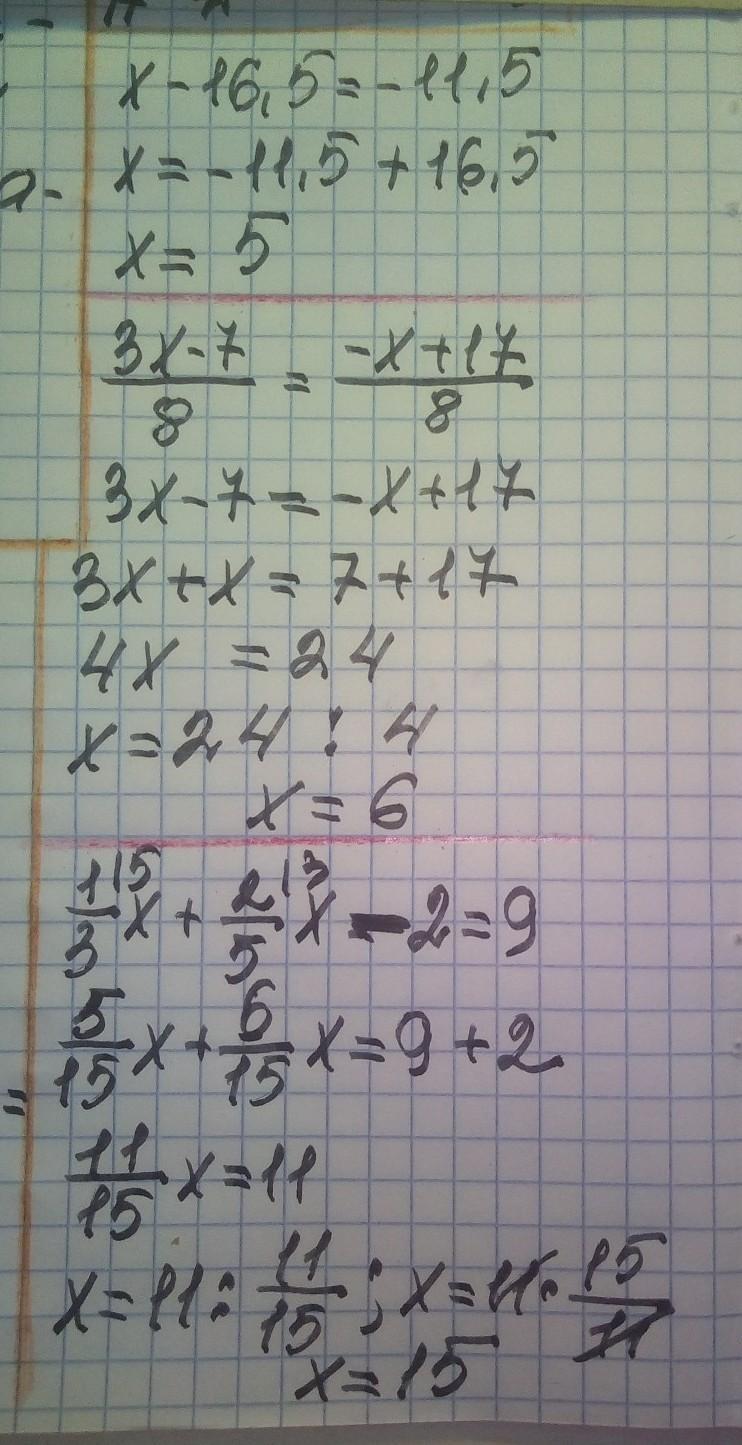 x - 16,5 = -11,5
x = -11,5 + 16,5
а-
x = 5
3x-7/8 = -x+17/8
3x - 7 = -x + 17
3x + x = 7 + 17
4x = 24
x = 24 : 4
x = 6
1|5/3 x + 2|3/5 x - 2 = 9
5/15 x + 6/15 x = 9 + 2
=
11/15 x = 11
x = 11 : 11/15 ; x = 11 · 15/11
x = 15